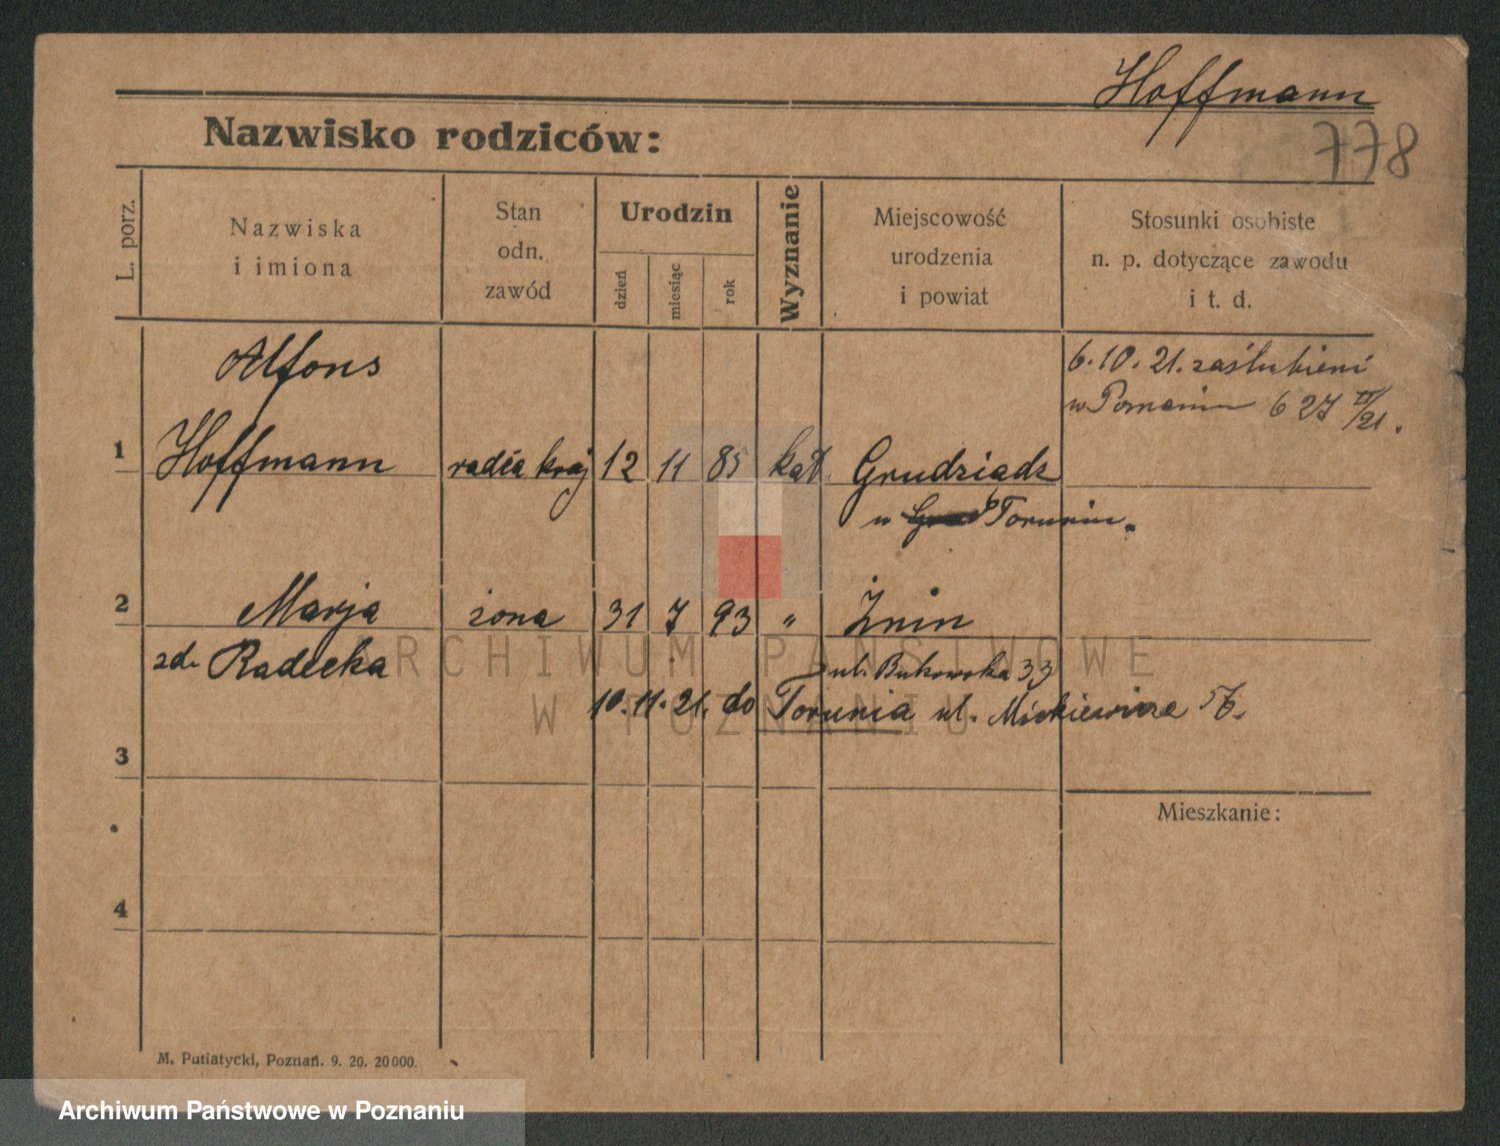 Hoffmann
778
Nazwisko rodziców:
L. porz.
Nazwiska
i imiona
Stan
odn.
zawód
Urodzin
dzień
miesiąc
rok
Wyznanie
Miejscowość
urodzenia
i powiat
Stosunki osobiste
n. p. dotyczące zawodu
i t. d.
6.10.21. zaślubieni
w Poznaniu 627 /21.
Alfons
1 Hoffmann radca kraj 12 11 85 kat. Grudziądz
Toruniu.
2 Marja żona 31 7 93 " Żnin
zd. Radecka
ul. Bukowska 33
10.11.21. do Torunia ul. Mickiewicza
3
Mieszkanie:
4
M. Putiatycki, Poznań. 9. 20. 20000.
ARCHIWUM PAŃSTWOWE
W POZNANIU
Archiwum Państwowe w Poznaniu